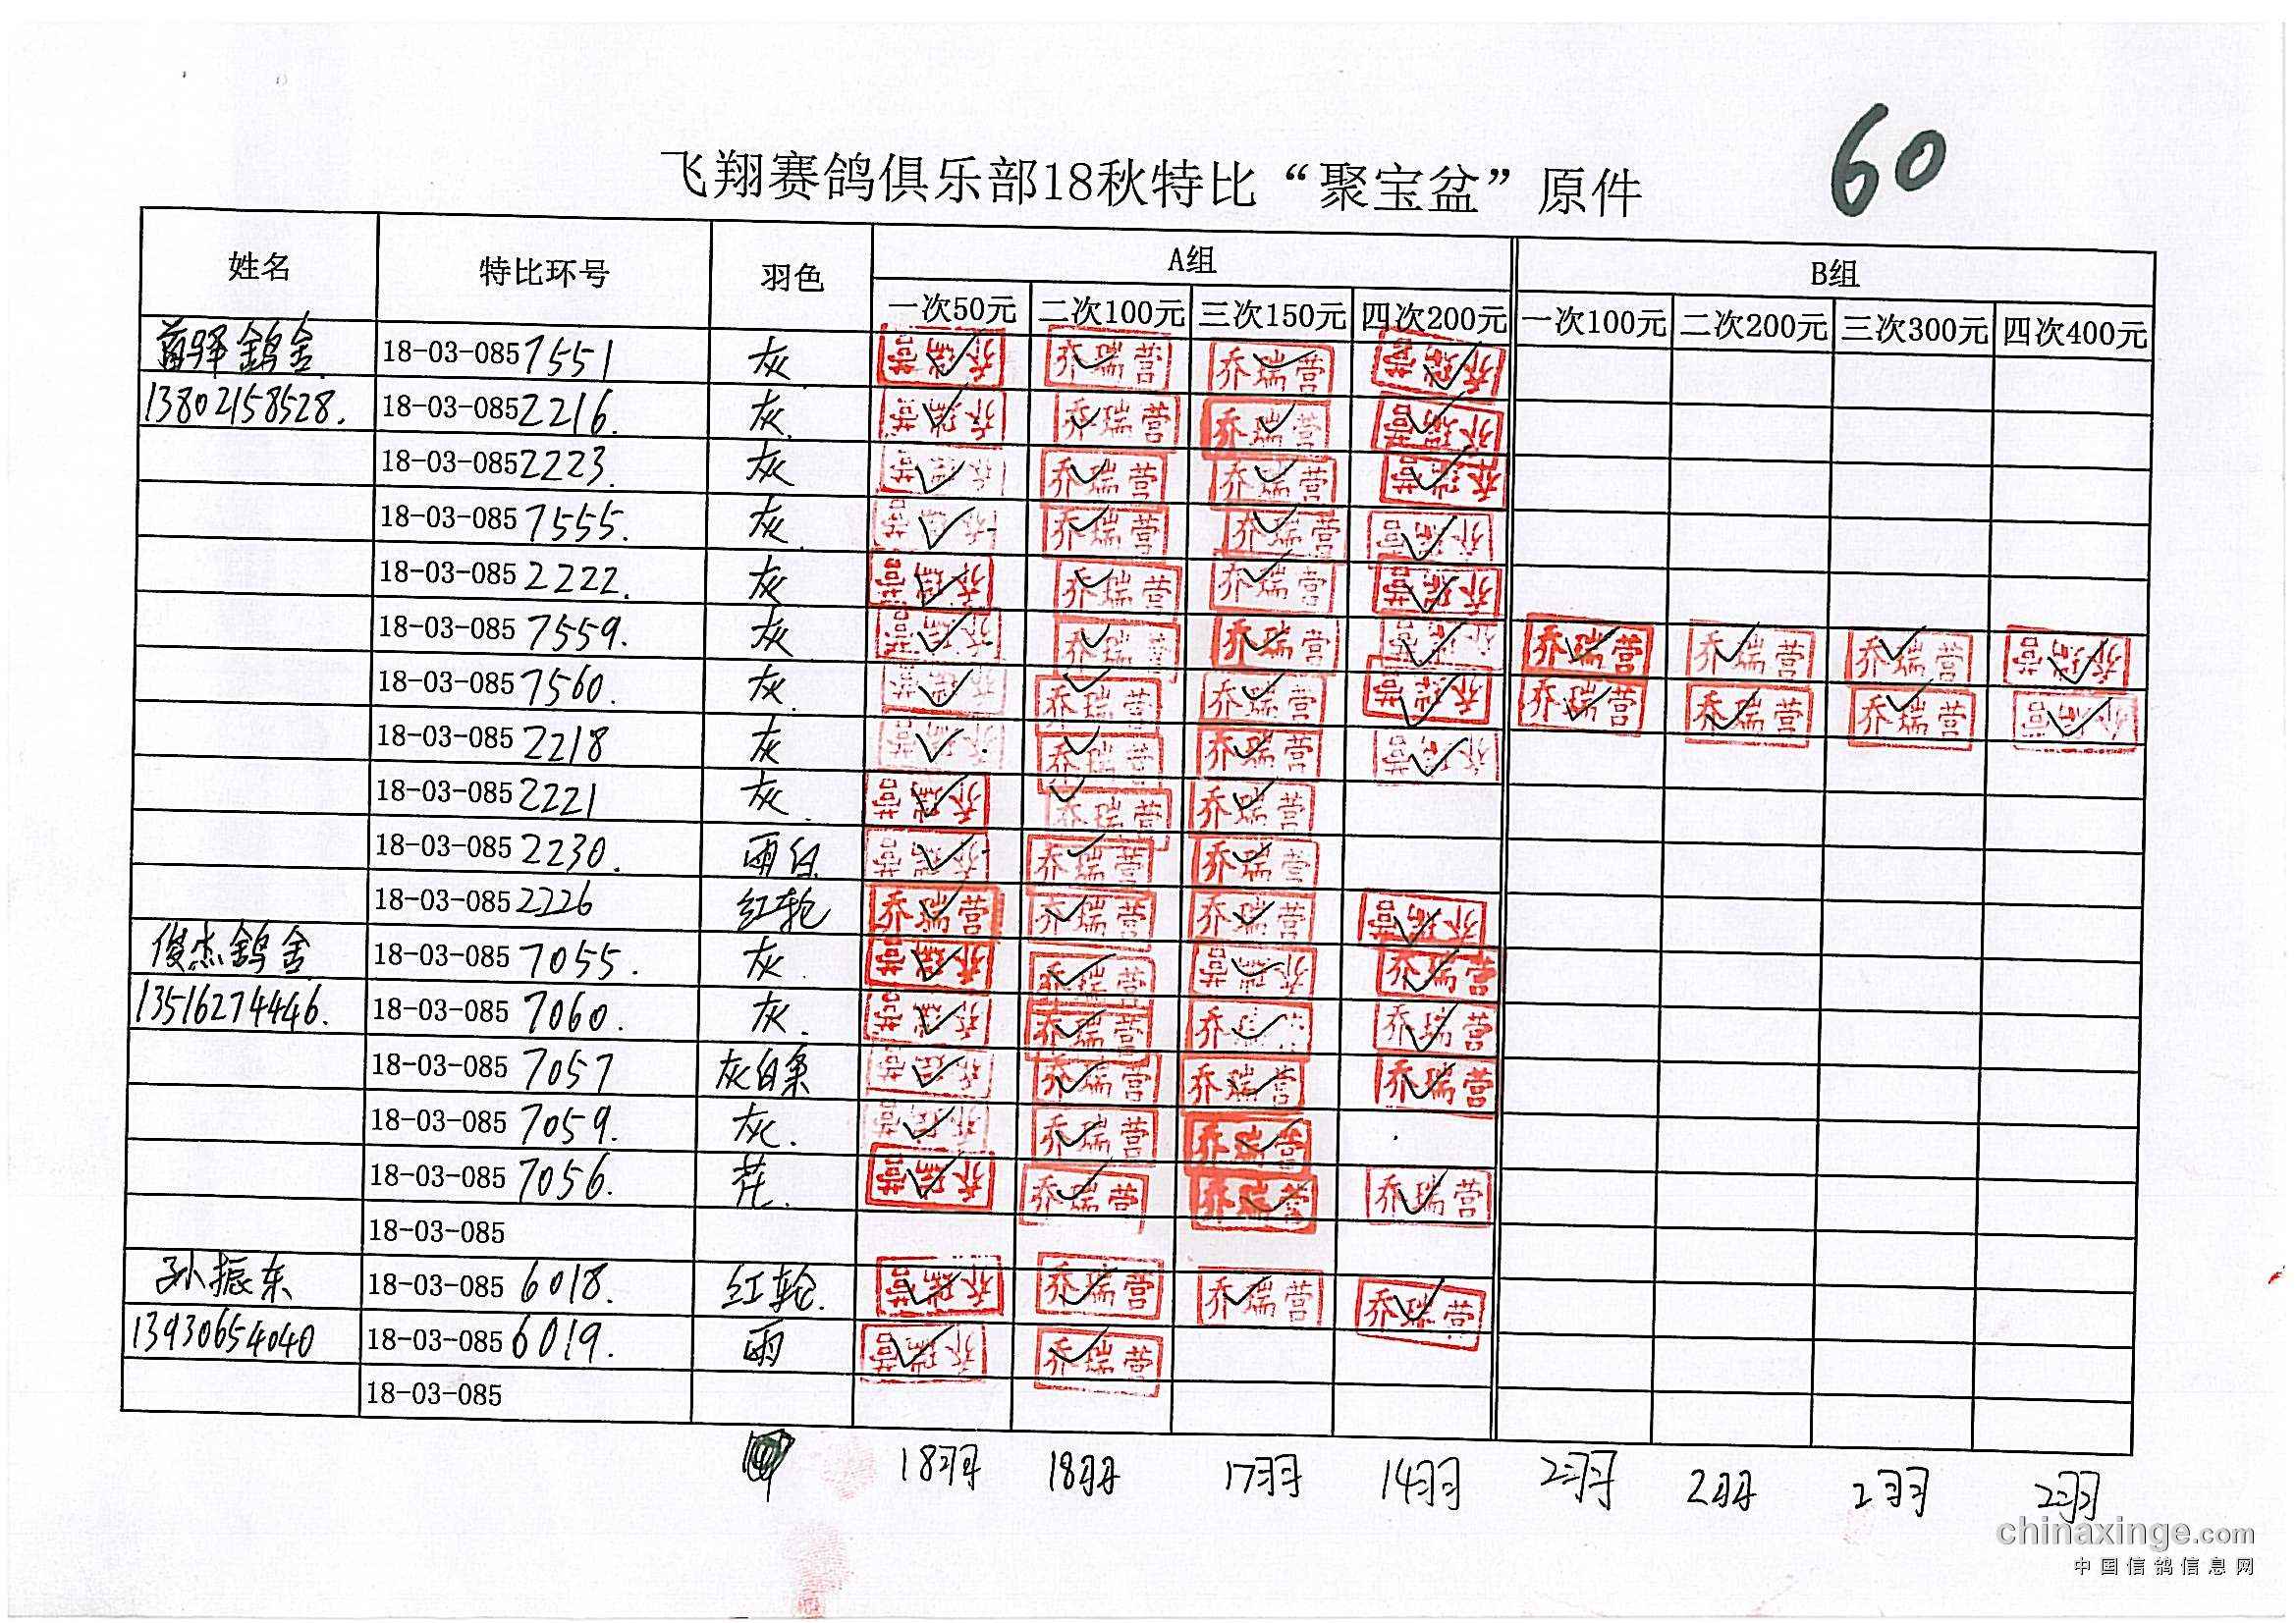 60
飞翔赛鸽俱乐部18秋特比“聚宝盆”原件
姓名 特比环号 羽色 A组 B组
一次50元 二次100元 三次150元 四次200元 一次100元 二次200元 三次300元 四次400元
鸽舍 18-03-085 7551 灰 乔瑞营 乔瑞营 乔瑞营 乔瑞营
13802158528. 18-03-085 2216. 灰. 乔瑞营 乔瑞营 乔瑞营 乔瑞营
18-03-085 2223. 灰 乔瑞营 乔瑞营 乔瑞营 乔瑞营
18-03-085 7555. 灰. 乔瑞营 乔瑞营 乔瑞营 乔瑞营
18-03-085 2222. 灰 乔瑞营 乔瑞营 乔瑞营 乔瑞营
18-03-085 7559. 灰 乔瑞营 乔瑞营 乔瑞营 乔瑞营 乔瑞营 乔瑞营 乔瑞营 乔瑞营
18-03-085 7560. 灰. 乔瑞营 乔瑞营 乔瑞营 乔瑞营 乔瑞营 乔瑞营 乔瑞营 乔瑞营
18-03-085 2218 灰 乔瑞营 乔瑞营 乔瑞营 乔瑞营
18-03-085 2221 灰. 乔瑞营 乔瑞营 乔瑞营
18-03-085 2230. 雨白. 乔瑞营 乔瑞营 乔瑞营
18-03-085 2226 红轮 乔瑞营 乔瑞营 乔瑞营 乔瑞营
俊杰鸽舍 18-03-085 7055. 灰. 乔瑞营 乔瑞营 乔瑞营 乔瑞营
13516274446. 18-03-085 7060. 灰. 乔瑞营 乔瑞营 乔瑞营 乔瑞营
18-03-085 7057 灰白条 乔瑞营 乔瑞营 乔瑞营 乔瑞营
18-03-085 7059. 灰. 乔瑞营 乔瑞营 乔瑞营
18-03-085 7056. 花. 乔瑞营 乔瑞营 乔瑞营 乔瑞营
18-03-085
孙振东 18-03-085 6018. 红轮. 乔瑞营 乔瑞营 乔瑞营 乔瑞营
13930654040 18-03-085 6019. 雨 乔瑞营 乔瑞营
18-03-085
18羽 18羽 17羽 14羽 2羽 2羽 2羽 2羽
chinaxinge.com
中国信鸽信息网